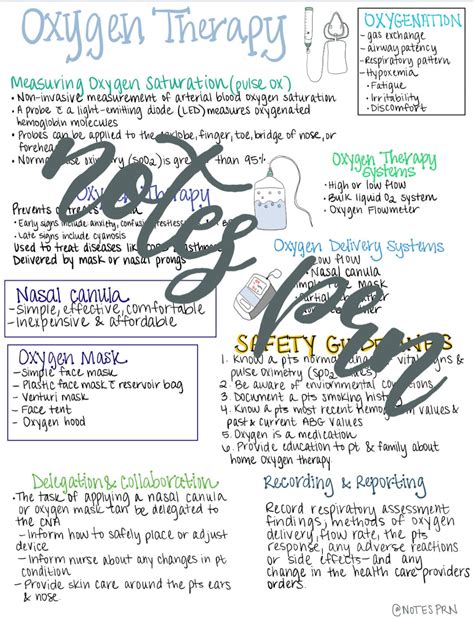 Oxygen Therapy
OXYGENATION
- gas exchange
- airway patency
- Respiratory pattern
- Hypoxemia
• Fatigue
• Irritability
• Discomfort
Measuring Oxygen Saturation (pulse ox)
• Non-invasive measurement of arterial blood oxygen saturation
• A probe c̄ a light-emitting diode (LED) measures oxygenated
hemoglobin molecules
• Probes can be applied to the earlobe, finger, toe, bridge of nose, or
forehead
• Normal oximetry (SpO2) is greater than 95%
Oxygen Therapy
Systems
• High or low flow
• Bulk liquid O2 system
• Oxygen Flowmeter
Oxygen Therapy
Prevents or treats
• Early signs include anxiety, confusion, restlessness
• Late signs include cyanosis
Used to treat diseases like COPD asthma
Delivered by mask or nasal prongs
Oxygen Delivery Systems
Low flow
• Nasal canula
Simple face mask
Partial rebreather
Nasal canula
- Simple, effective, comfortable
- Inexpensive & affordable
Oxygen Mask
- Simple face mask
- Plastic face mask c̄ reservoir bag
- Venturi mask
- Face tent
- Oxygen hood
SAFETY GUIDELINES
1. Know a pts normal range vital signs &
pulse oximetry (SpO2 values)
2. Be aware of environmental conditions
3. Document a pts smoking history
4. Know a pts most recent Hemoglobin values &
past & current ABG values
5. Oxygen is a medication
6. Provide education to pt & family about
home oxygen therapy
Delegation & Collaboration
• The task of applying a nasal canula
or oxygen mask can be delegated to
the CNA
- Inform how to safely place or adjust
device
- Inform nurse about any changes in pt
condition
- Provide skin care around the pts ears
& nose
Recording & Reporting
Record respiratory assessment
findings, methods of oxygen
delivery, flow rate, the pts
response, any adverse reactions
or side effects- and any
change in the health care providers
orders
notes prn
@NOTESPRN